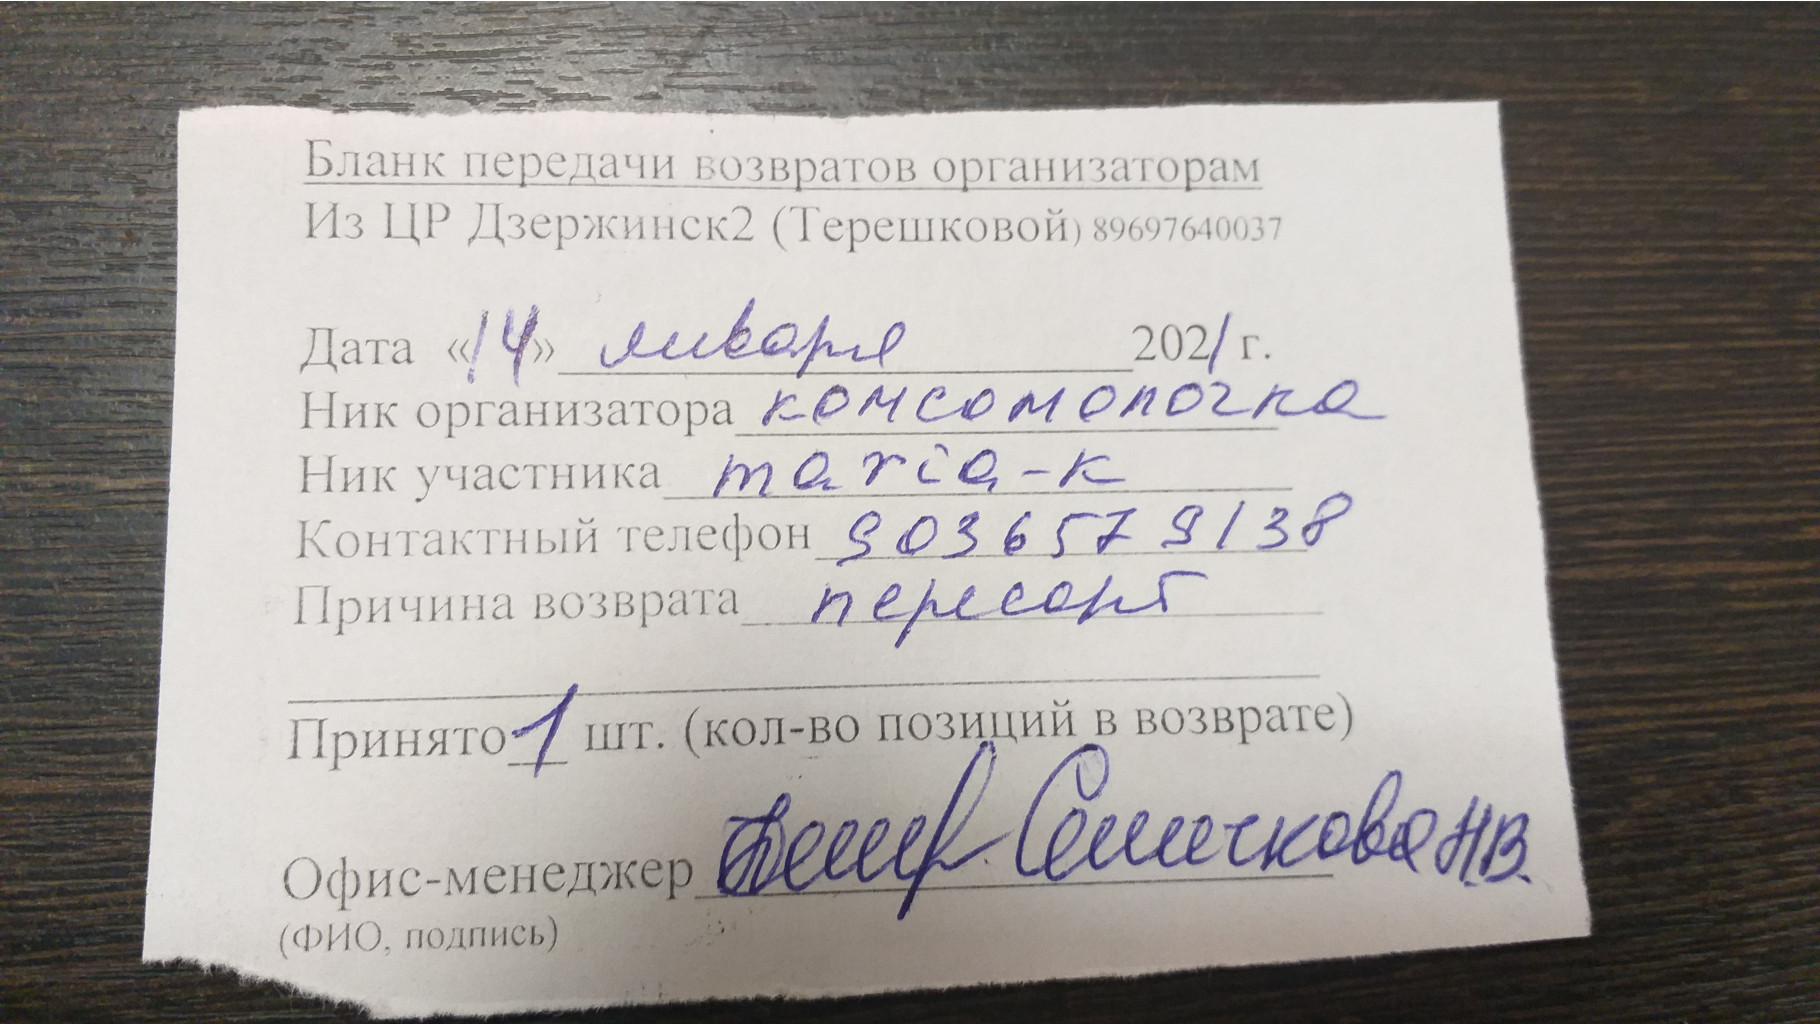 Бланк передачи возвратов организаторам
Из ЦР Дзержинск2 (Терешковой) 89697640037
Дата «14» января 2021 г.
Ник организатора комсомолочка
Ник участника maria-k
Контактный телефон 9036579138
Причина возврата пересорт
Принято 1 шт. (кол-во позиций в возврате)
Офис-менеджер Н.В.
(ФИО, подпись)